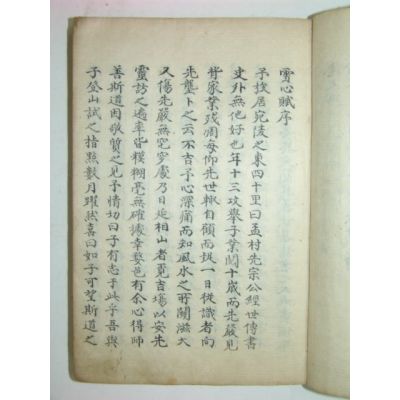 雪心賦序
予族居宛陵之東四十里曰孟村先宗公經世傳書
史外無他好也年十三攻擧子業閱十歲而先嚴見
背家業殘凋每仰先世輒自顧而拔一日從識者向
先壟卜之云不吉予心深痛而知風水之所關滋大
又傷先嚴無窀穸處乃日延相山者覓吉塲以安先
靈訪之過率皆糢糊毫無確據幸婺邑有余心得師
善斯道因敬質之見予情切曰子有志于此乎吾與
子登山試之指照數月躍然喜曰如子可望斯道之